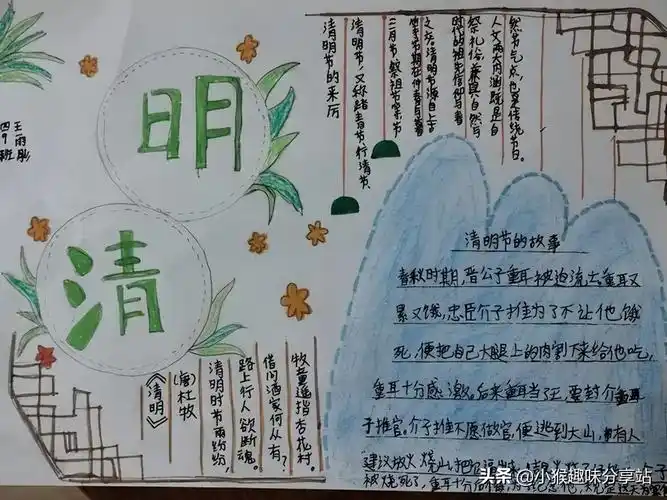 明
清
四9班
王雨彤
清明节的来历
清明节,又称踏青节、行清节、
三月节、祭祖节等节
节期在仲春与暮春
之交。清明节源自上古
时代的祖先信仰与春
祭礼俗,兼具自然与
人文两大内涵,既是自
然节气点,也是传统节日。
《清明》
(唐)杜牧
清明时节雨纷纷,
路上行人欲断魂。
借问酒家何处有?
牧童遥指杏花村。
清明节的故事
春秋时期,晋公子重耳被迫流亡,重耳又
累又饿,忠臣介子推为了不让他饿
死,便把自己大腿上的肉割下来给他吃,
重耳十分感激。后来重耳当了王,要封介
子推官,介子推不愿做官,便逃到大山,有人
建议放火烧山,把
被烧死了,重耳十分
头条 @小猴趣味分享站